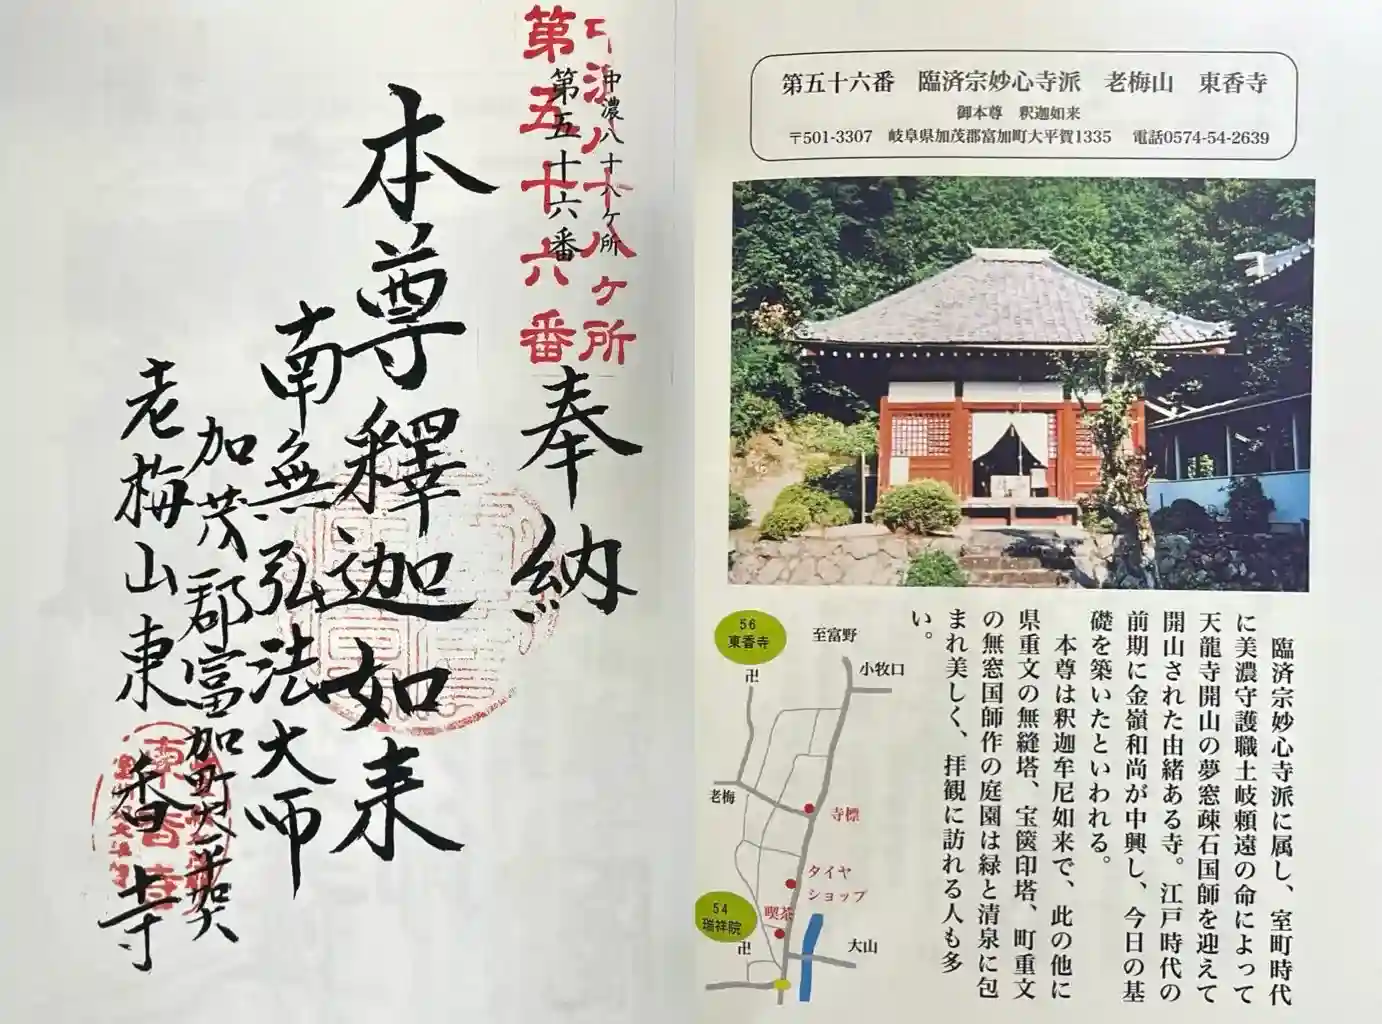 中濃八十八ケ所
第五十六番
中濃八十八ヶ所
第五十六番
奉納
本尊釋迦如来
南無弘法大師
加茂郡富加町大平賀
老梅山東香寺
東香寺
第五十六番 臨済宗妙心寺派 老梅山 東香寺
御本尊 釈迦如来
〒501-3307 岐阜県加茂郡富加町大平賀1335 電話0574-54-2639
臨済宗妙心寺派に属し、室町時代
に美濃守護職土岐頼遠の命によって
天龍寺開山の夢窓疎石国師を迎えて
開山された由緒ある寺。江戸時代の
前期に金嶺和尚が中興し、今日の基
礎を築いたといわれる。
本尊は釈迦牟尼如来で、此の他に
県重文の無縫塔、宝篋印塔、町重文
の無窓国師作の庭園は緑と清泉に包
まれ美しく、拝観に訪れる人も多
い。
56
東香寺
卍
至富野
小牧口
老梅
寺標
タイヤ
ショップ
喫茶
54
瑞祥院
卍
大山